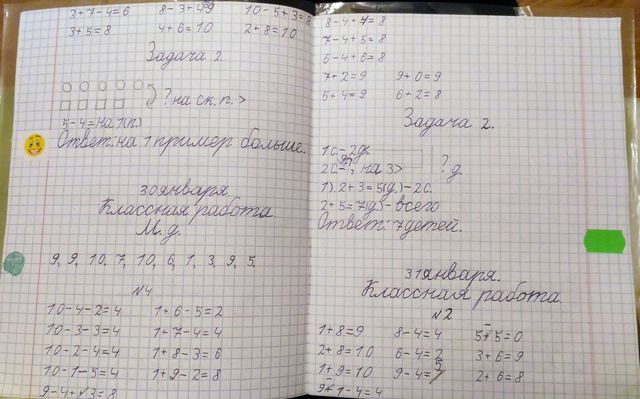 3+7-4=6 8-3+4=9 10-5+3=8
3+5=8 4+6=10 2+8=10
Задача 2.
? на ск. п. >
5-4=на 1(п.)
Ответ: на 1 пример больше.
30 января.
Классная работа.
М. д.
9, 9, 10, 7, 10, 6, 1, 3, 9, 5.
№4
10-4-2=4 1+6-5=2
10-3-3=4 1+7-4=4
10-2-4=4 1+8-3=6
10-1-5=4 1+9-2=8
9-4+3=8
8-4+4=8
7-4+5=8
6-4+6=8
7+2=9 9+0=9
5+4=9 6+2=8
Задача 2.
1с.-2д.
2с.-?, на 3> ? д.
1). 2+3=5(д.)-2с.
2+5=7(д)-всего
Ответ: 7 детей.
31 января.
Классная работа.
№2
1+8=9 8-4=4 5-5=0
2+8=10 6-4=2 3+6=9
1+9=10 9-4=5 2+6=8
9-1-4=4